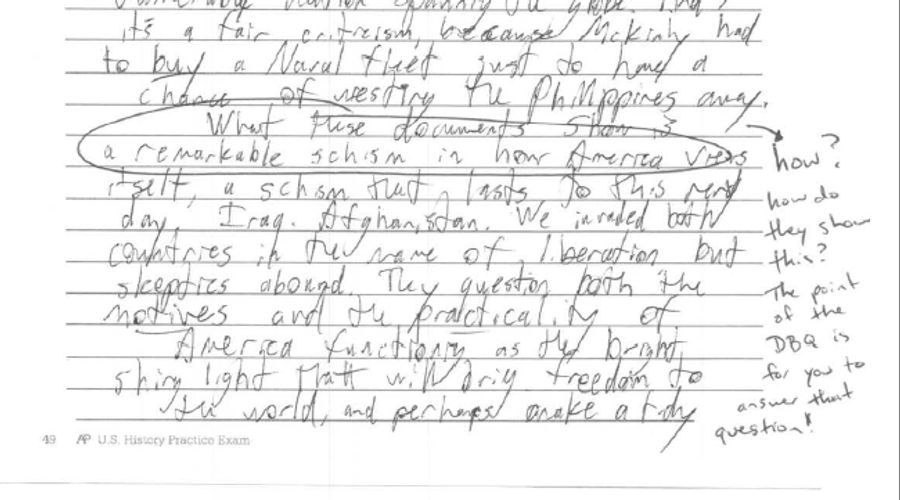 it's a fair criticism, because McKinly had
to buy a Naval fleet just to have a
chance of wresting the Phillippines away.
What these documents show is
a remarkable schism in how America views
itself, a schism that lasts to this very
day, Iraq. Afghanistan. We invaded both
countries in the name of liberation but
skeptics abound. They question both the
motives and the practicality of
America functioning as the bright,
shiny light that will bring freedom to
the world, and perhaps make a tidy
how?
how do
they show
this?
The point
of the
DBQ is
for you to
answer that
question!
49 AP U.S. History Practice Exam